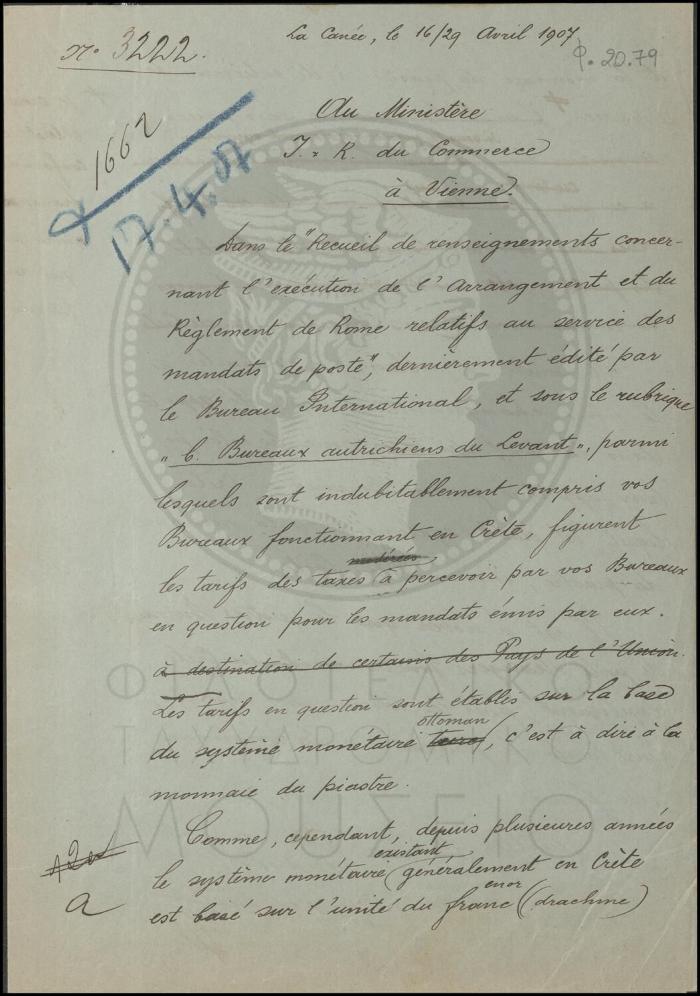 La Canée, le 16/29 Avril 1907
No 3222.
φ. 20.79
1662
17.4.07
Au Ministère
I. R. du Commerce
à Vienne.
Dans le "Recueil de renseignements concer-
nant l'exécution de l'Arrangement et du
Règlement de Rome relatifs au service des
mandats de poste", dernièrement édité par
le Bureau International, et sous le rubrique
"b. Bureaux autrichiens du Levant", parmi
lesquels sont indubitablement compris vos
Bureaux fonctionnant en Crète, figurent
modérées
les tarifs des taxes à percevoir par vos Bureaux
en question pour les mandats émis par eux.
à destination de certains des Pays de l'Union.
Les tarifs en question sont établis sur la base
ottoman
du système monétaire turc, c'est à dire à la
monnaie du piastre.
Comme, cependant, depuis plusieures années
existant
le système monétaire généralement en Crète
en or
est basé sur l'unité du franc (drachme)
a
ΦΙΛΟΤΕΛΙΚΟ
ΤΑΧΥΔΡΟΜΙΚΟ
ΜΟΥΣΕΙΟ